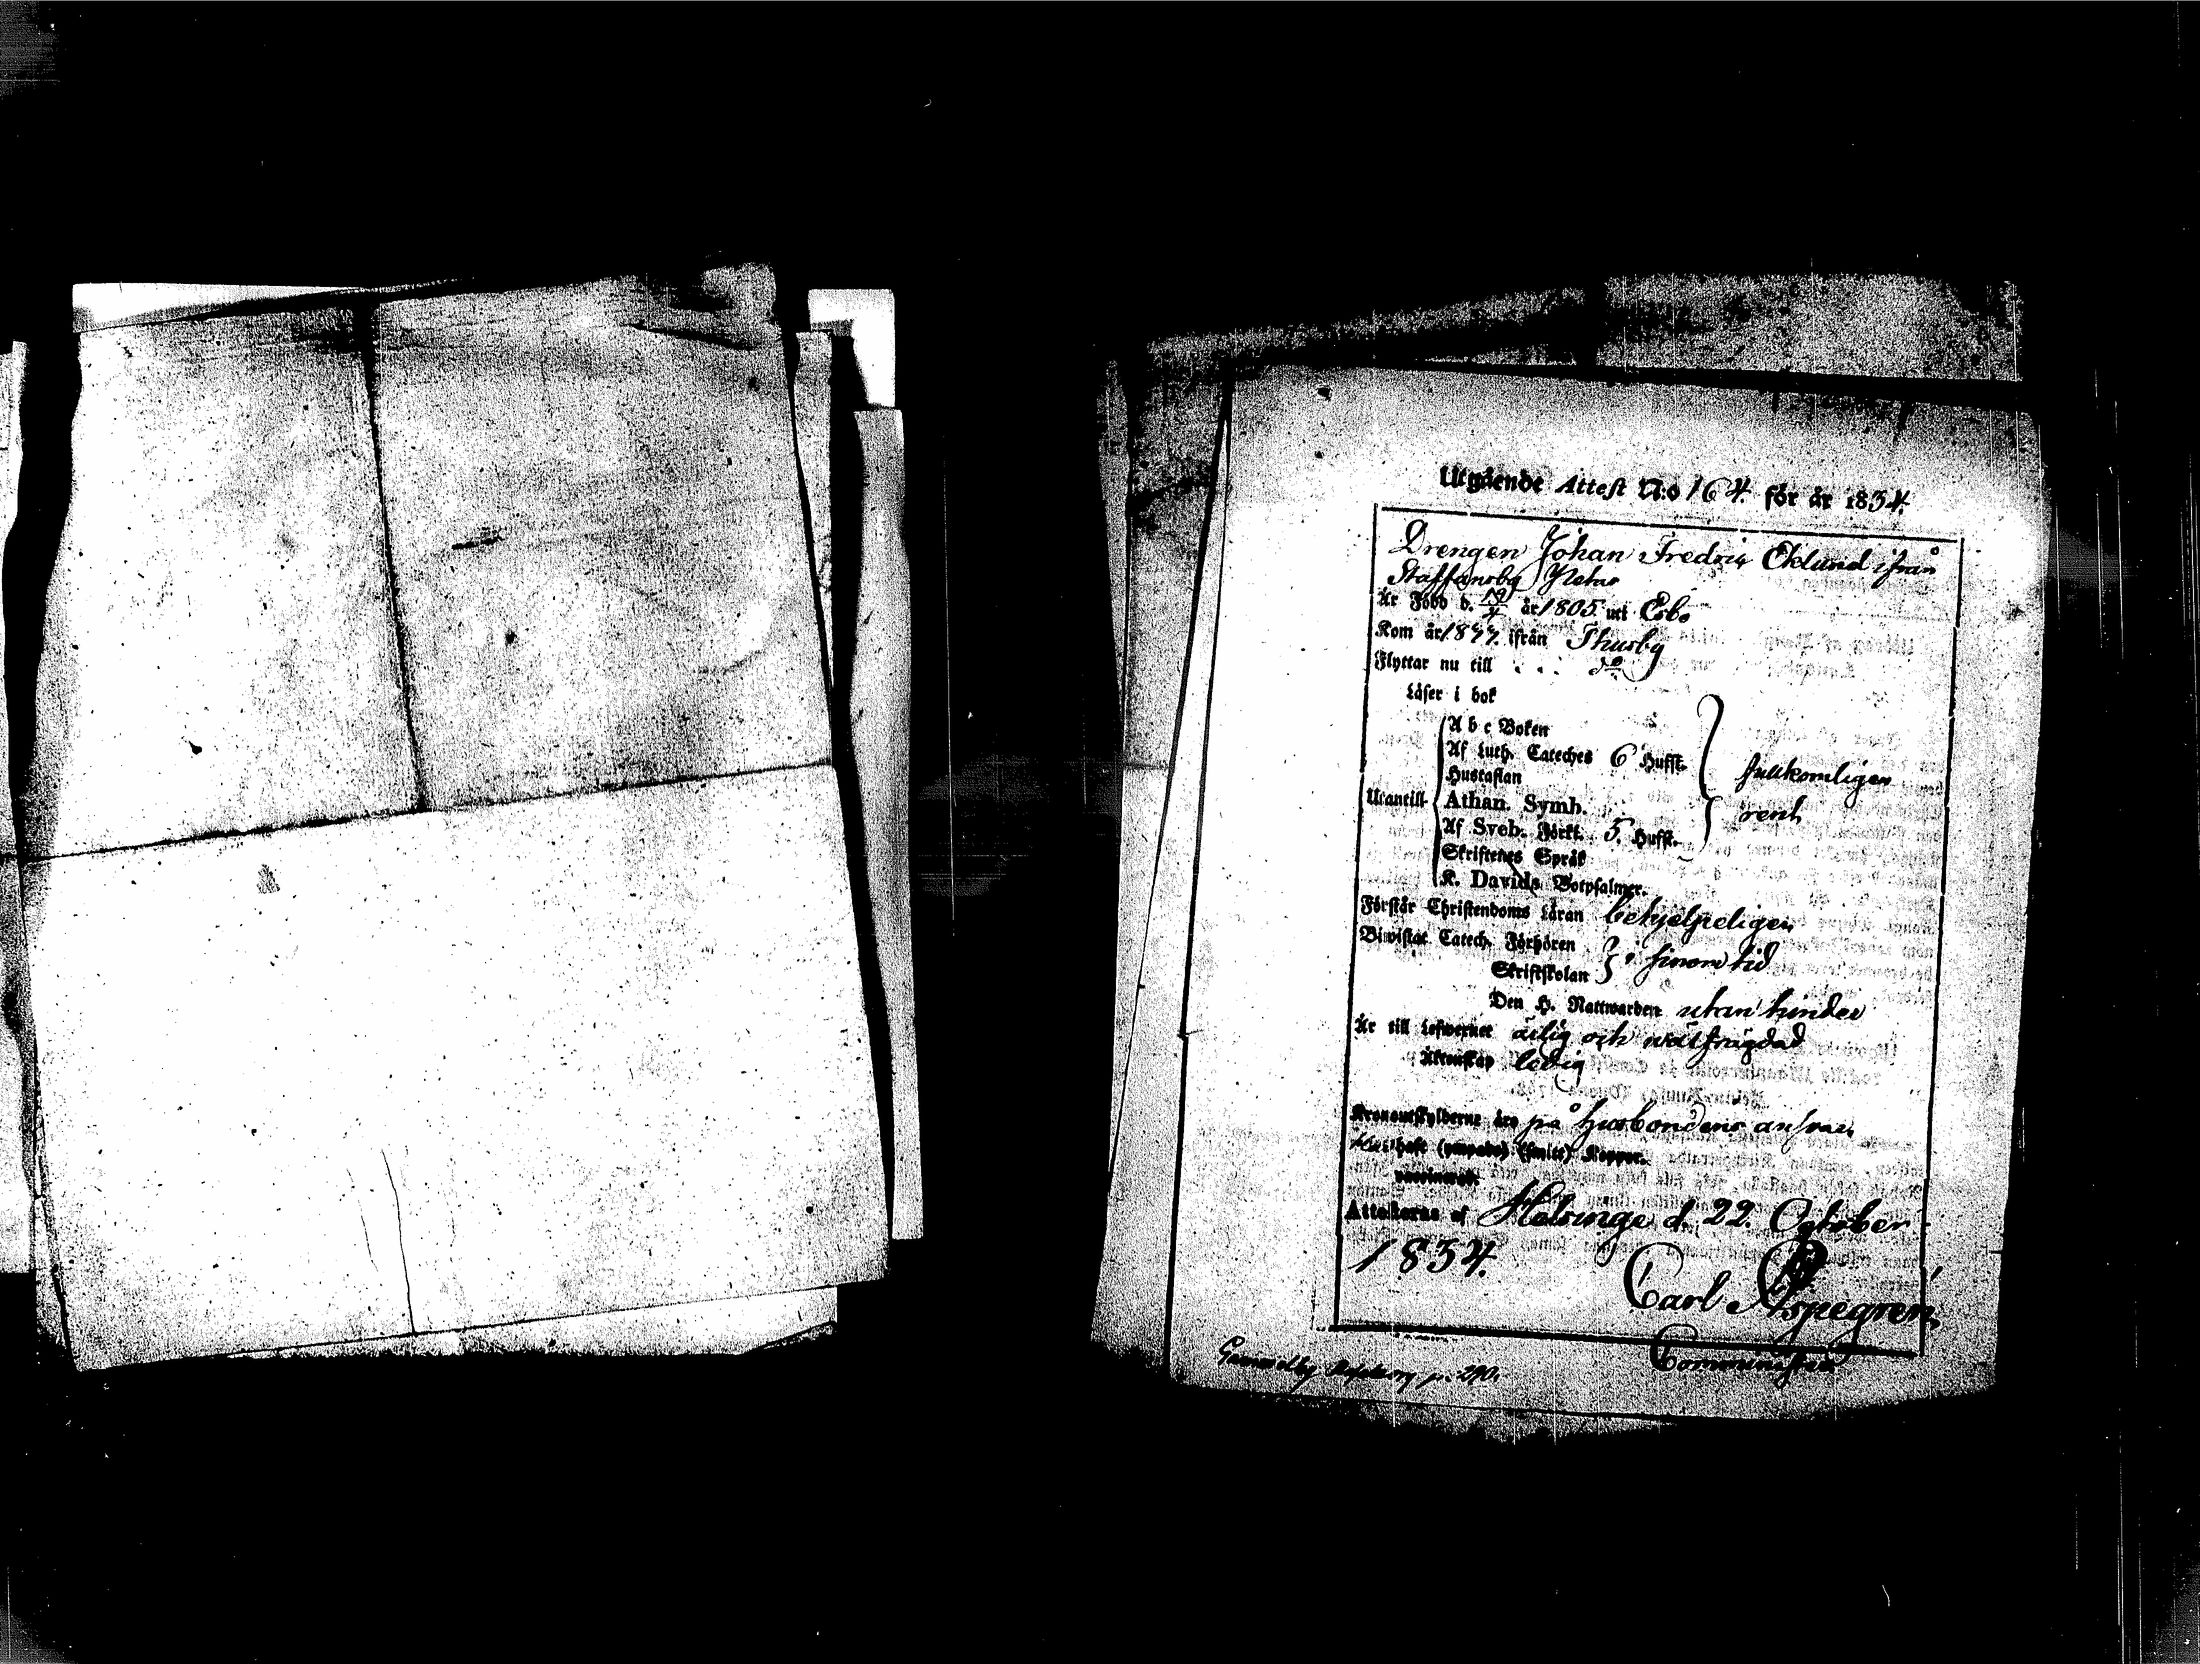 Utgående Attest N:o 164. för år 1834.
Drengen Johan Fredric Eklund ifrån
Staffansby
Är Född d. 19/4 år 1805. uti Esbo
Kom år ifrån Thusby
Flyttar nu till . . . do
Läser i bok
A b c Boken
Af Luth. Cateches 6 Hufst.
Hustaflan
fullkomligen
Utantill Athan. Symb.
rent
Af Sveb. Förkl. 5. Hufst.
Skriftenes Språk
K. Davids Botpsalmer.
Förstår Christendoms Läran behjelpeligen
Biwistat Catech. Förhören
Skriftskolan i sinom tid
Den H. Nattwarden utan hinder
Är till Lefwernet ärlig och wälfrägdad
Äktenskap ledig
Kronoutskylderne äro på husbondens ansvar
haft (ympade) (smitt) Koppor.
vaccinerad.
Attesteras af Helsinge d. 22. October
1834.
Carl Aspegren,
Comminister
p. 290.